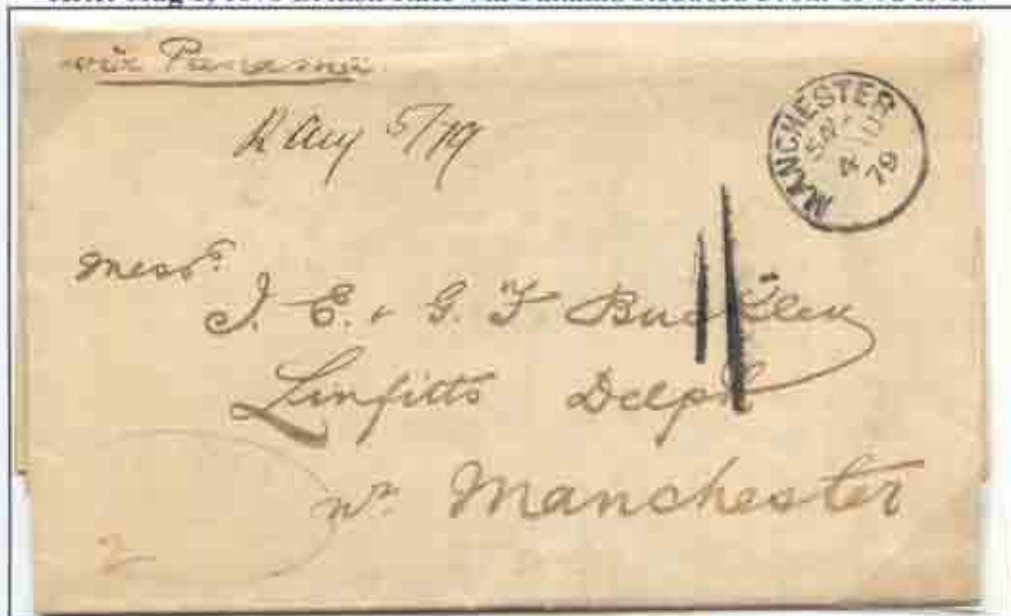 via Panama
R Aug 5/79
MANCHESTER
79
Messrs
J. E. & G. F. Buckley
Linfitts Delph
nr. Manchester
2